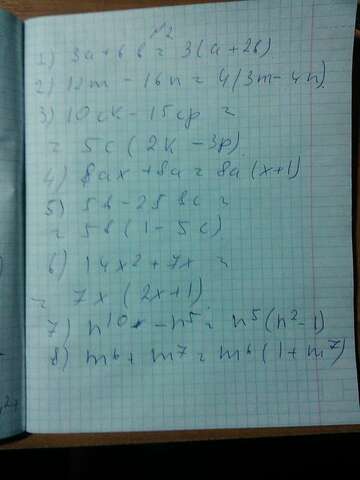 №2
1) 3a + 6b = 3(a + 2b)
2) 12m - 16n = 4(3m - 4n)
3) 10ck - 15cp =
= 5c (2k - 3p)
4) 8ax + 8a = 8a (x+1)
5) 5b - 25bc =
= 5b (1 - 5c)
6) 14x² + 7x =
= 7x (2x+1)
7) n¹⁰ - n⁵ = n⁵(n² - 1)
8) m⁶ + m⁷ = m⁶(1 + m⁷)